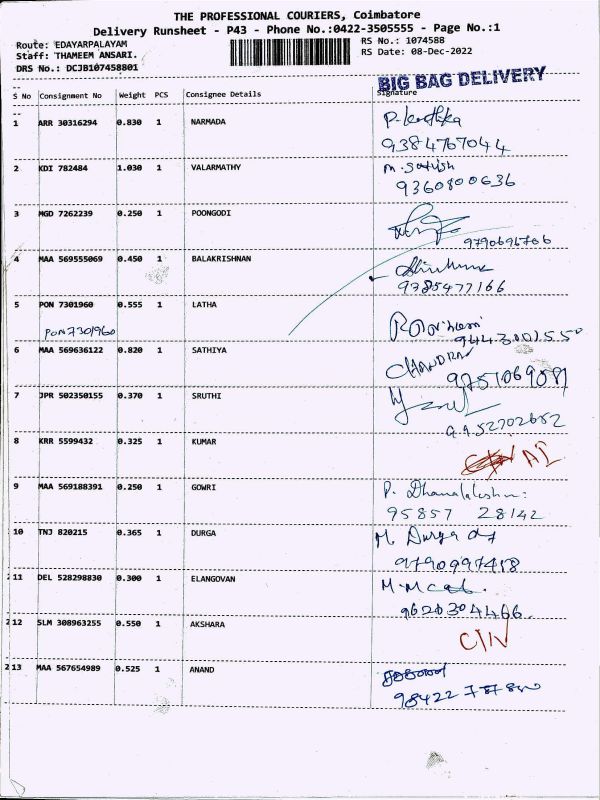 THE PROFESSIONAL COURIERS, Coimbatore
Delivery Runsheet - P43 - Phone No.:0422-3505555 - Page No.:1
Route: EDAYARPALAYAM RS No.: 1074588
Staff: THAMEEM ANSARI. RS Date: 08-Dec-2022
DRS No.: DCJB107458801
BIG BAG DELIVERY
S No Consignment No Weight PCS Consignee Details Signature
1 ARR 30316294 0.830 1 NARMADA
9384767044
2 KDI 782484 1.030 1 VALARMATHY M. Satish
9360800636
3 MGD 7262239 0.250 1 POONGODI
9790694766
4 MAA 569555069 0.450 1 BALAKRISHNAN
9785477166
5 PON 7301960 0.555 1 LATHA
PON7301960
9443001550
6 MAA 569636122 0.820 1 SATHIYA CHANDRA
9751069081
7 JPR 502350155 0.370 1 SRUTHI
9952702652
8 KRR 5599432 0.325 1 KUMAR
9 MAA 569188391 0.250 1 GOWRI P. Dhanalakshmi
95857 28142
10 TNJ 820215 0.365 1 DURGA M. Durga
9790997418
11 DEL 528298830 0.300 1 ELANGOVAN
9620304466
12 SLM 308963255 0.550 1 AKSHARA
13 MAA 567654989 0.525 1 ANAND
98422